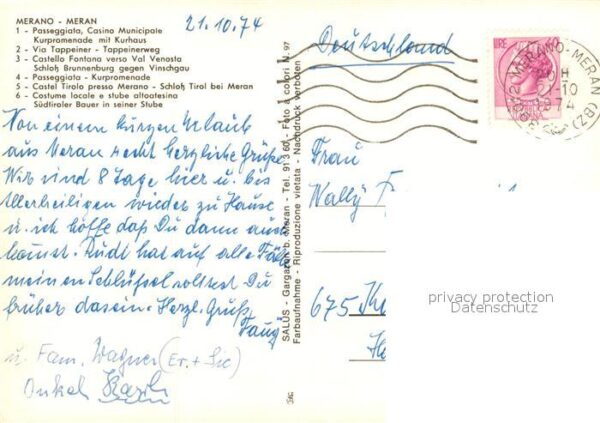 MERANO - MERAN
1 - Passeggiata, Casino Municipale
Kurpromenade mit Kurhaus
2 - Via Tappeiner - Tappeinerweg
3 - Castello Fontana verso Val Venosta
Schloß Brunnenburg gegen Vinschgau
4 - Passeggiata - Kurpromenade
5 - Castel Tirolo presso Merano - Schloß Tirol bei Meran
6 - Costume locale e stube altoatesina
Südtiroler Bauer in seiner Stube
21.10.74
Von einem kurzen Urlaub
aus Meran recht herzliche Grüße
Wir sind 8 Tage hier u. bis
Allerheiligen wieder zu Hause
u. ich hoffe daß Du dann auch
kommst. Rudi hat auf alle Fälle
meinen Schlüssel solltest Du
früher da sein. Herzl. Gruß
u. Fam. Wagner (Er. + Sie)
Onkel
SALUS - Gargazon b. Meran - Tel. 91 3 60 - Foto a colori N. 97
Farbaufnahme - Riproduzione vietata - Nachdruck verboten
Deutschland
LIRE 60
39012 MERANO-MERAN (BZ)
21-10
1974
Frau
Wally
675
privacy protection
Datenschutz